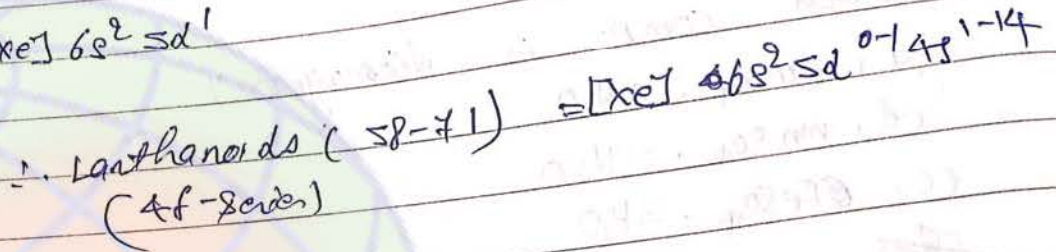 xe] 6s² 5d¹
∴ Lanthanoids (58-71) = [xe] 6s² 5d⁰⁻¹ 4f¹⁻¹⁴
(4f-Series)